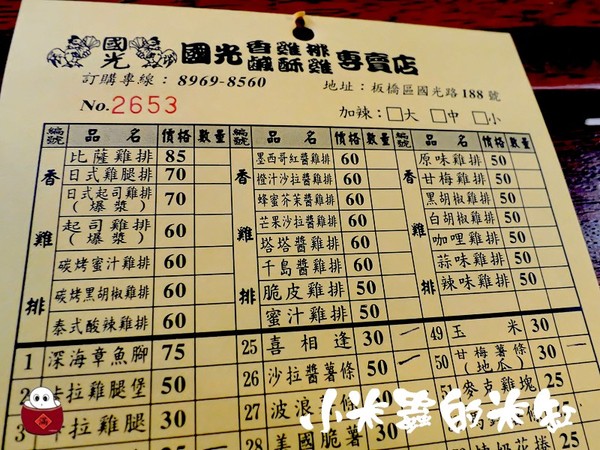 國光 國光 香雞排 鹹酥雞 專賣店
訂購專線：8969-8560 地址：板橋區國光路188號
No.2653 加辣：□大 □中 □小
編號 品名 價格 數量 編號 品名 價格 數量 編號 品名 價格 數量
香雞排 香雞排 香雞排
比薩雞排 85 墨西哥紅醬雞排 60 原味雞排 50
日式雞腿排 70 橙汁沙拉醬雞排 60 甘梅雞排 50
日式起司雞排(爆漿) 70 蜂蜜芥茉醬雞排 60 黑胡椒雞排 50
芒果沙拉醬雞排 60 白胡椒雞排 50
起司雞排(爆漿) 60 塔塔醬雞排 60 咖哩雞排 50
碳烤蜜汁雞排 60 千島醬雞排 60 蒜味雞排 50
碳烤黑胡椒雞排 60 脆皮雞排 50 辣味雞排 50
泰式酸辣雞排 60 蜜汁雞排 50
1 深海章魚腳 75 25 喜相逢 30 49 玉米 30
2 卡拉雞腿堡 50 26 沙拉醬薯條 50 50 甘梅薯條(地瓜) 30
3 卡拉雞腿 30 27 波浪薯條 30 51 麥克雞塊 25
28 美國脆薯
小米蟲的米缸